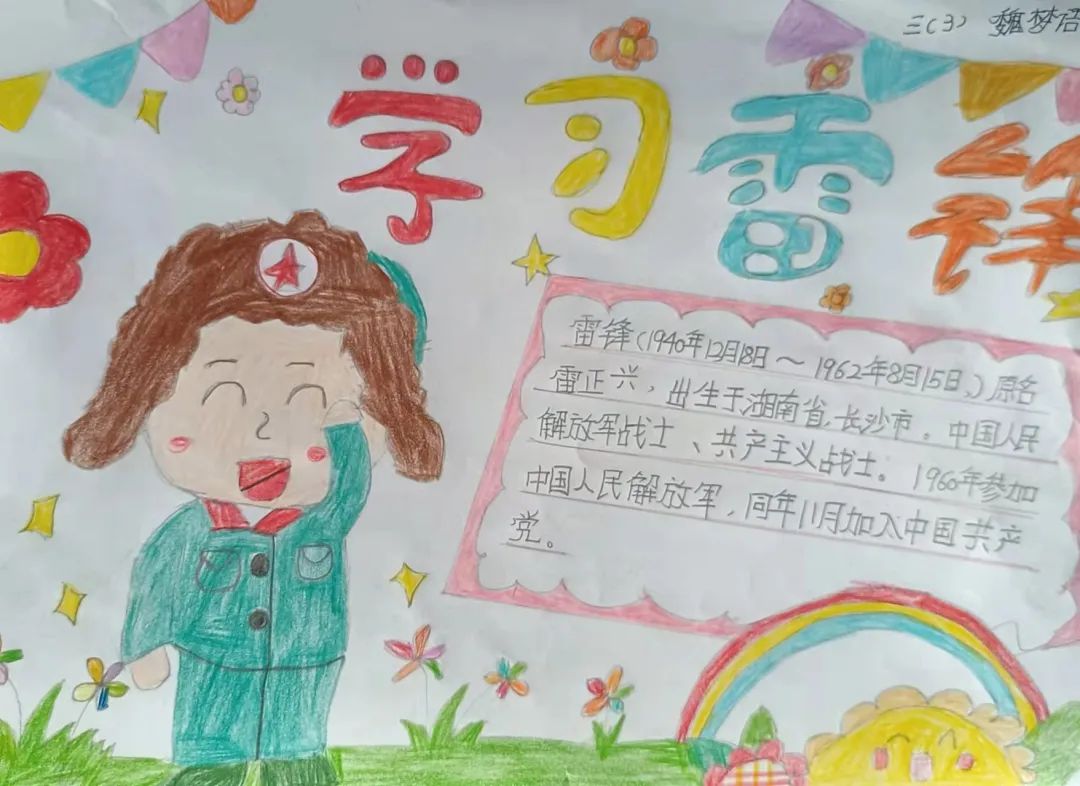 三(3) 魏梦语
学习雷锋
雷锋(1940年12月18日~1962年8月15日,)原名
雷正兴,出生于湖南省长沙市。中国人民
解放军战士、共产主义战士。1960年参加
中国人民解放军,同年11月加入中国共产
党。